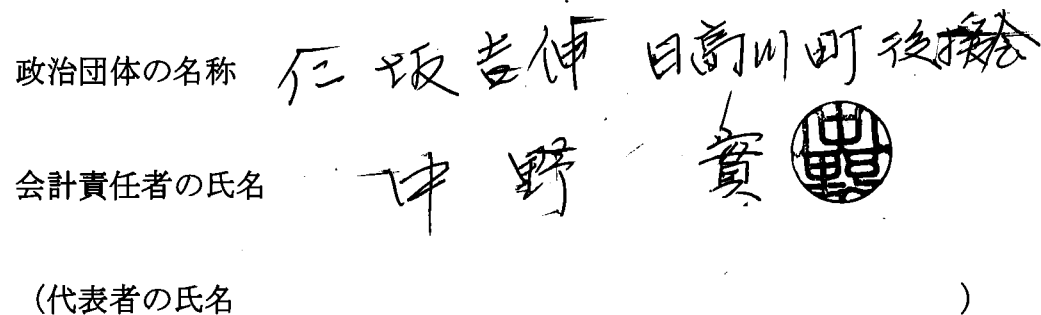 政治団体の名称 仁坂吉伸 日高川町後援会
会計責任者の氏名 中野 實 中野
(代表者の氏名 )